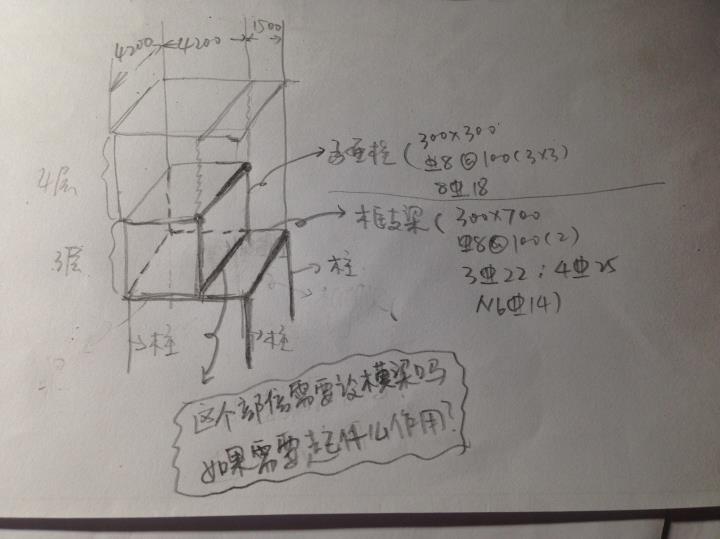 4200
4200
1500
300×300
8@100(3×3)
8⏀18
框支梁(300×700
8@100(2)
3⏀22;4⏀25
N6⏀14)
4层
3层
柱
柱
柱
这个部位需要设横梁吗
如果需要起什么作用?